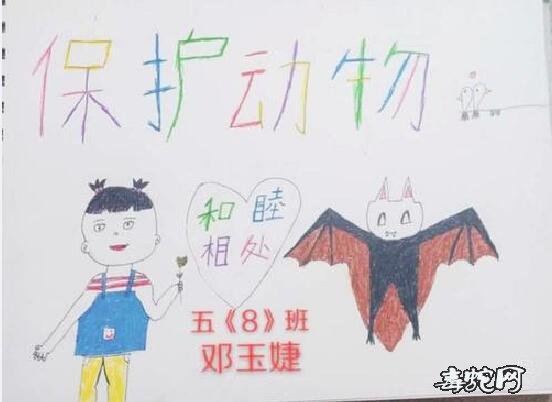 保护动物
和睦
相处
五《8》班
邓玉婕
毒蛇网